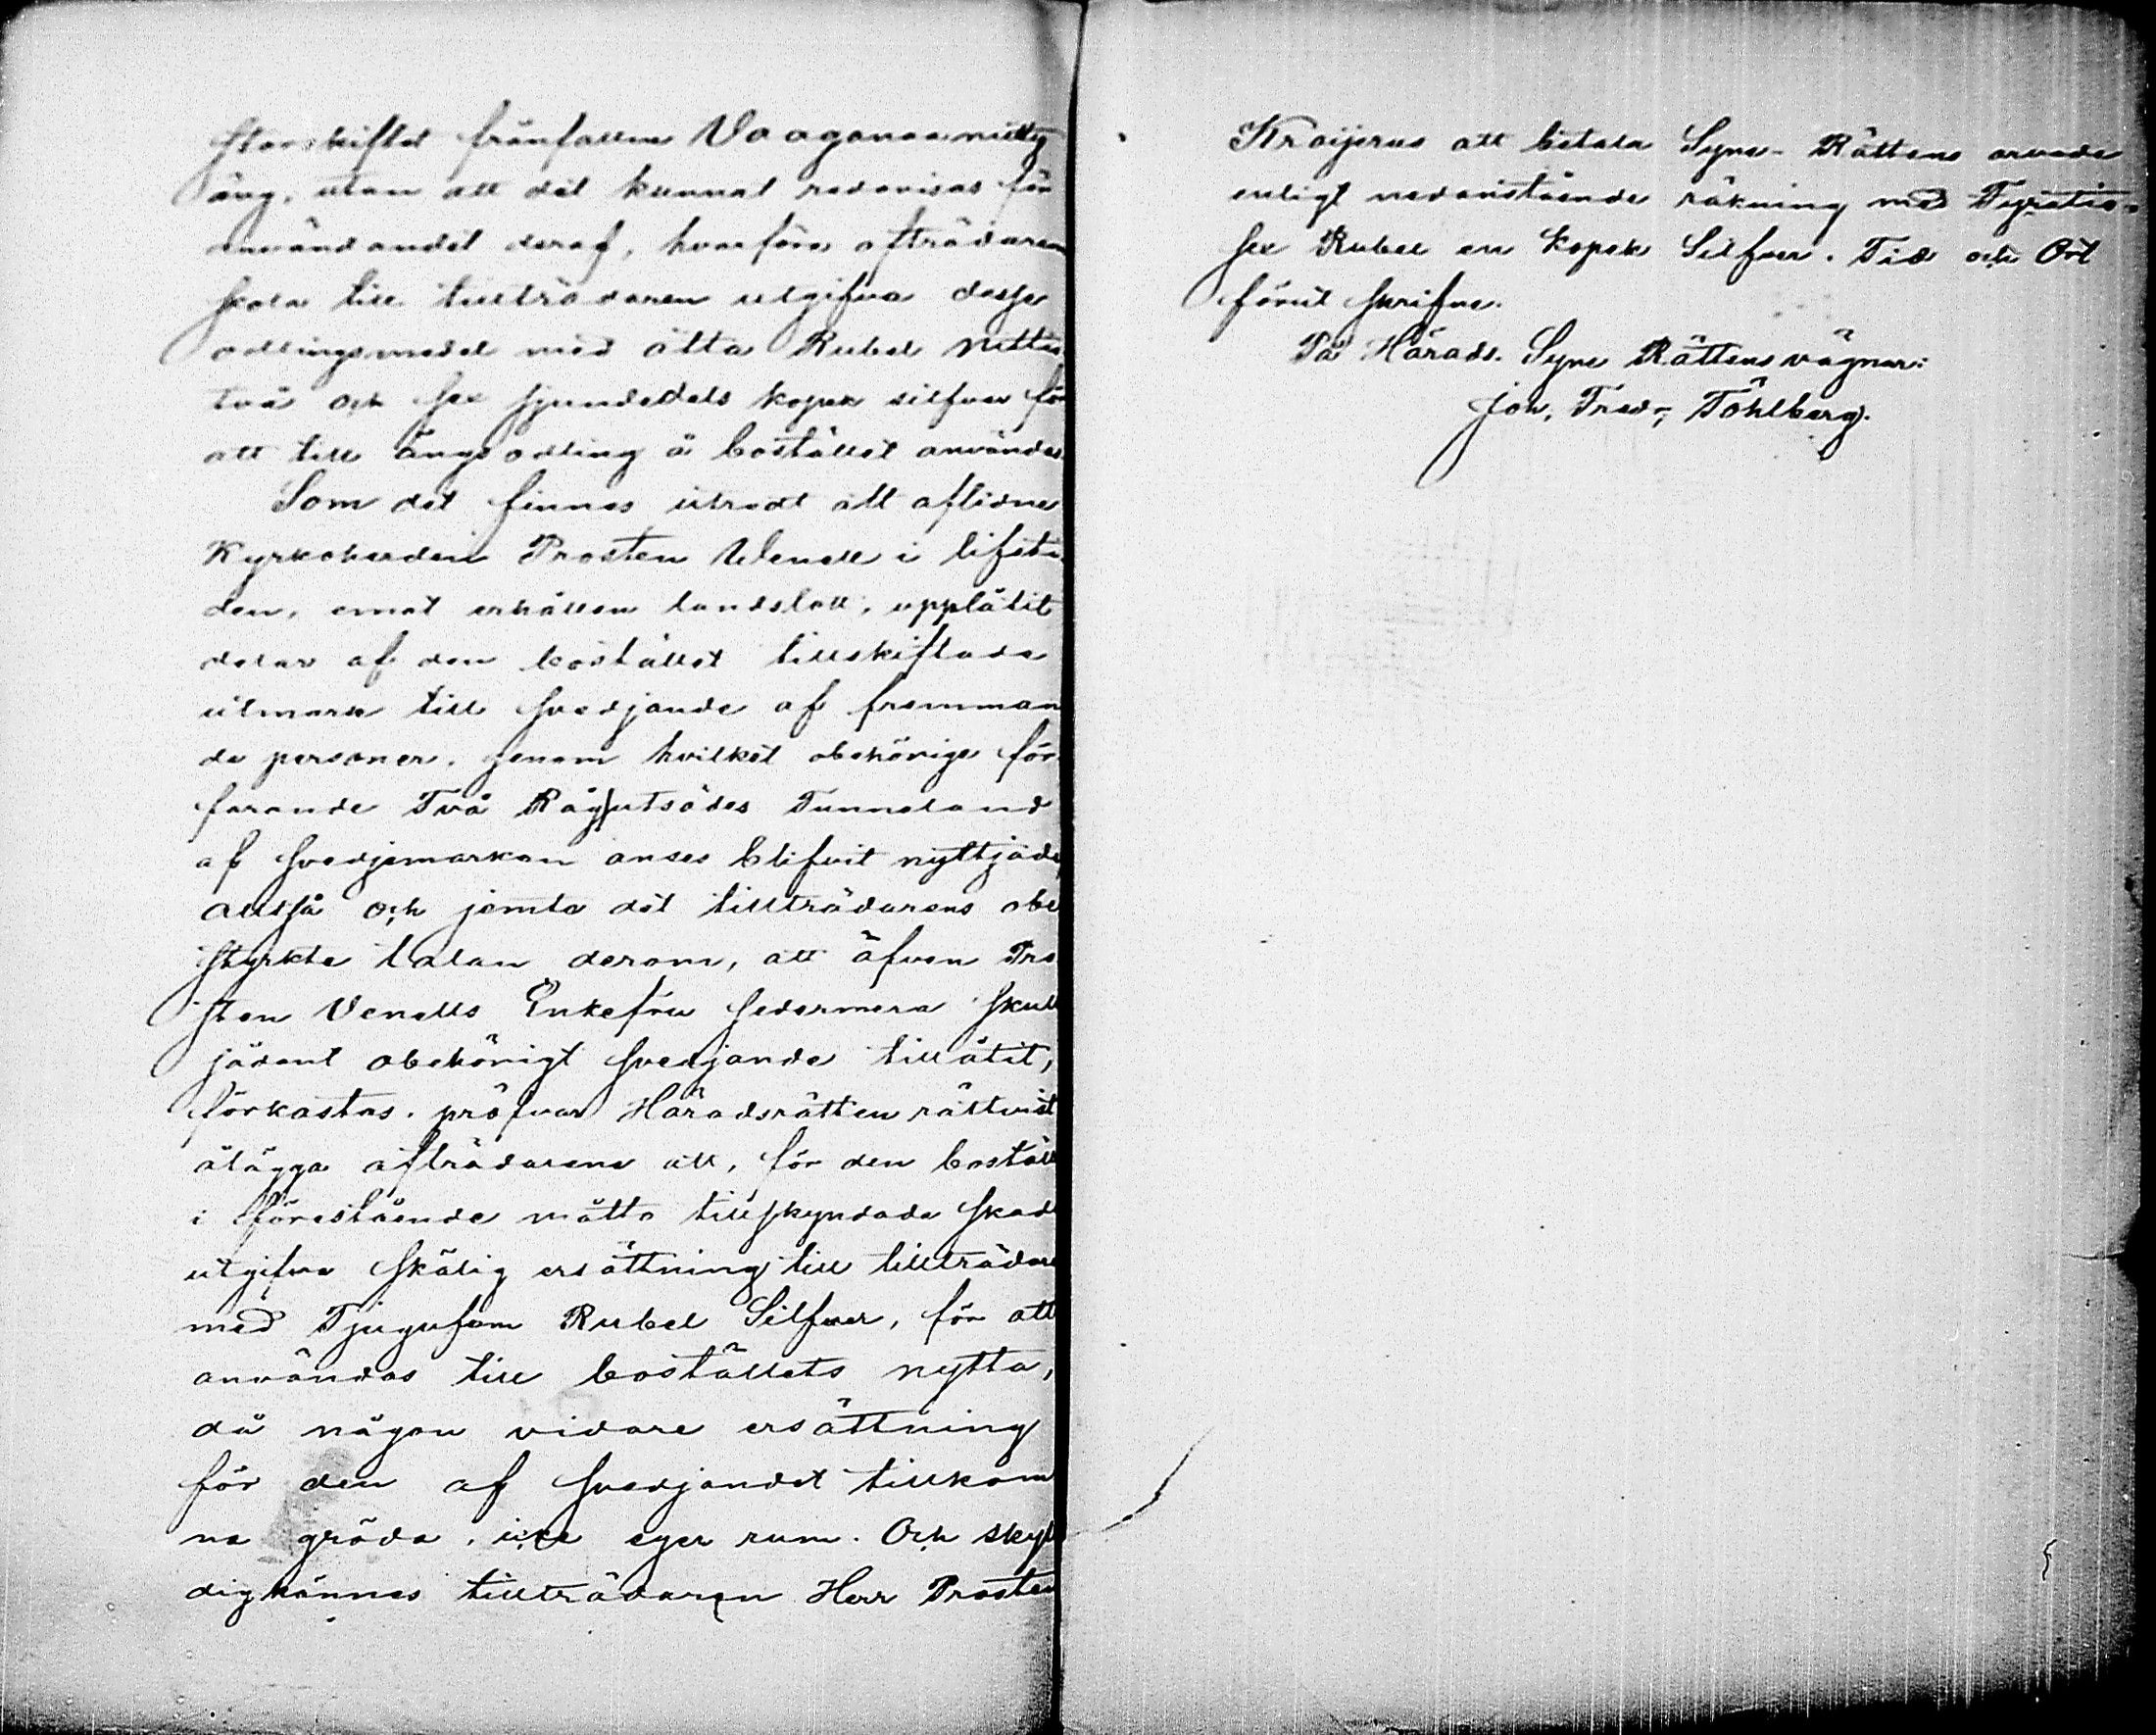 storskiftet frånfallna Vaaganaanniitty
äng, utan att det kunnat redovisas för
användandet deraf, hvarföre afträdaren
skola till tillträdaren utgifva dessa
odlingsmedel med åtta Rubel nittio
två och sex sjundedels kopek silfver för
att till ängsodling å bostället användas.
Som det finnes utredt att aflidne
Kyrkoherden Prosten Wenell i lifsti-
den, emot erhållen landslott, upplåtit
delar af den bostället tillskiftade
utmark till svedjande af fremman
de personer, genom hvilket obehöriga för
farande Två Rågutsädes Tunneland
af svedjemarken anses blifvit nyttjade
alltså och jemte det tillträdarens obe
styrkta talan derom, att äfven Pro
sten Venells Enkefru sedermera skul
jädant obehörigt svedjande tillåtit,
förkastas, pröfvar Häradsrätten rättvist
ålägga afträdarena att, för den boställ
i förestående måtto tillskyndade skad
utgifva skälig ersättning till tillträdare
med Tjugufem Rubel Silfver, för att
användas till boställets nytta,
då någon vidare ersättning
för den af svedjandet tillkom
na gröda, icke eger rum. Och skyl
digkännes tillträdaren Herr Prosten
Kraijerus att betala Syne-Rättens arvode
enligt nedanstående räkning med Fyratio-
sex Rubel en kopek Silfver. Tid och Ort
förut skrifne.
På Härads. Syne Rättens vägnar:
Joh. Fredr. Töhlberg.